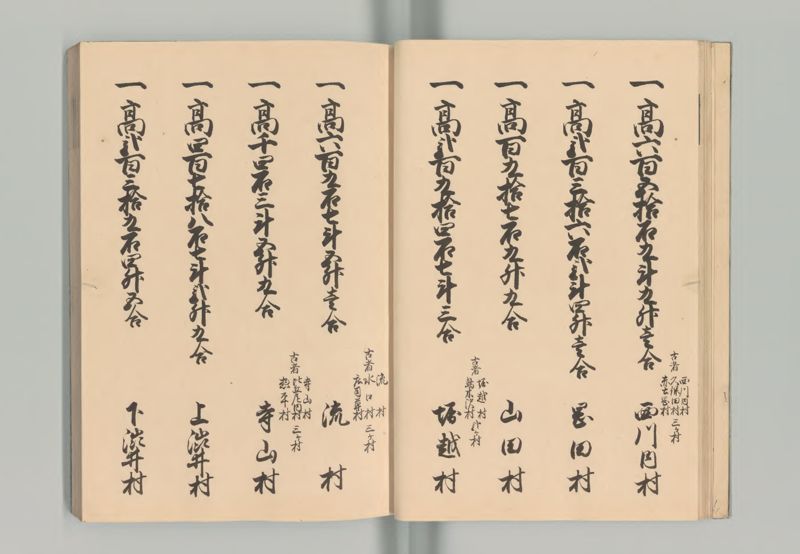 一 高六百五拾石九斗九升壱合
古者 西川内村
久保田村
赤土町村
三ヶ村
西川内村
一 高弐百三拾六石弐斗四升壱合
岡田村
一 高百九拾七石九升九合
山田村
一 高弐百九拾四石七斗三合
古者 堀越村
弐ヶ村
堀越村
一 高六百九石七斗五升壱合
古者 流村
水口村
三ヶ村
流村
一 高千四石三斗五升九合
古者 寺山村
松本村
三ヶ村
寺山村
一 高四百七拾八石七斗弐升九合
上澁井村
一 高弐百三拾九石四升五合
下澁井村